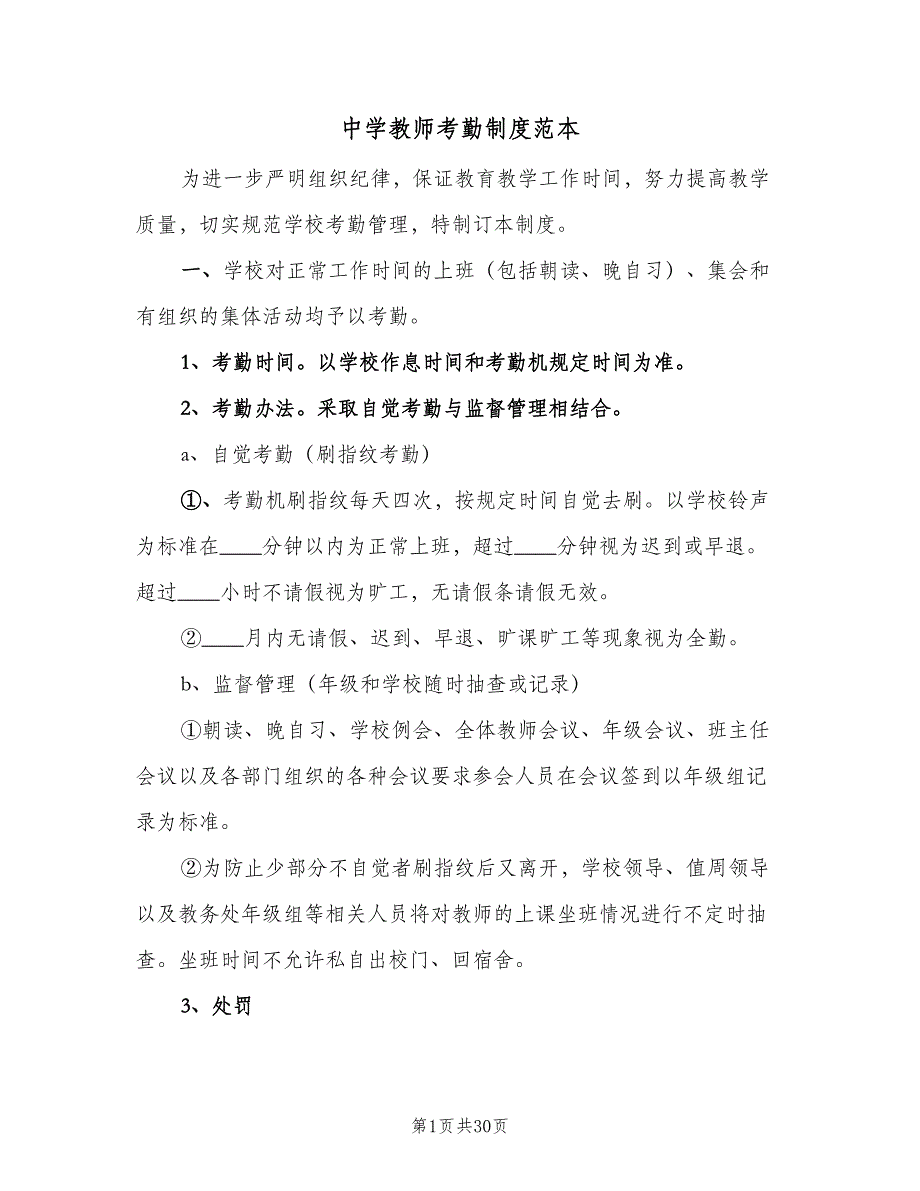 中学教师考勤制度范本
为进一步严明组织纪律，保证教育教学工作时间，努力提高教学
质量，切实规范学校考勤管理，特制订本制度。
一、学校对正常工作时间的上班（包括朝读、晚自习）、集会和
有组织的集体活动均予以考勤。
1、考勤时间。以学校作息时间和考勤机规定时间为准。
2、考勤办法。采取自觉考勤与监督管理相结合。
a、自觉考勤（刷指纹考勤）
①、考勤机刷指纹每天四次，按规定时间自觉去刷。以学校铃声
为标准在____分钟以内为正常上班，超过____分钟视为迟到或早退。
超过____小时不请假视为旷工，无请假条请假无效。
②____月内无请假、迟到、早退、旷课旷工等现象视为全勤。
b、监督管理（年级和学校随时抽查或记录）
①朝读、晚自习、学校例会、全体教师会议、年级会议、班主任
会议以及各部门组织的各种会议要求参会人员在会议签到以年级组记
录为标准。
②为防止少部分不自觉者刷指纹后又离开，学校领导、值周领导
以及教务处年级组等相关人员将对教师的上课坐班情况进行不定时抽
查。坐班时间不允许私自出校门、回宿舍。
3、处罚
第1页共30页